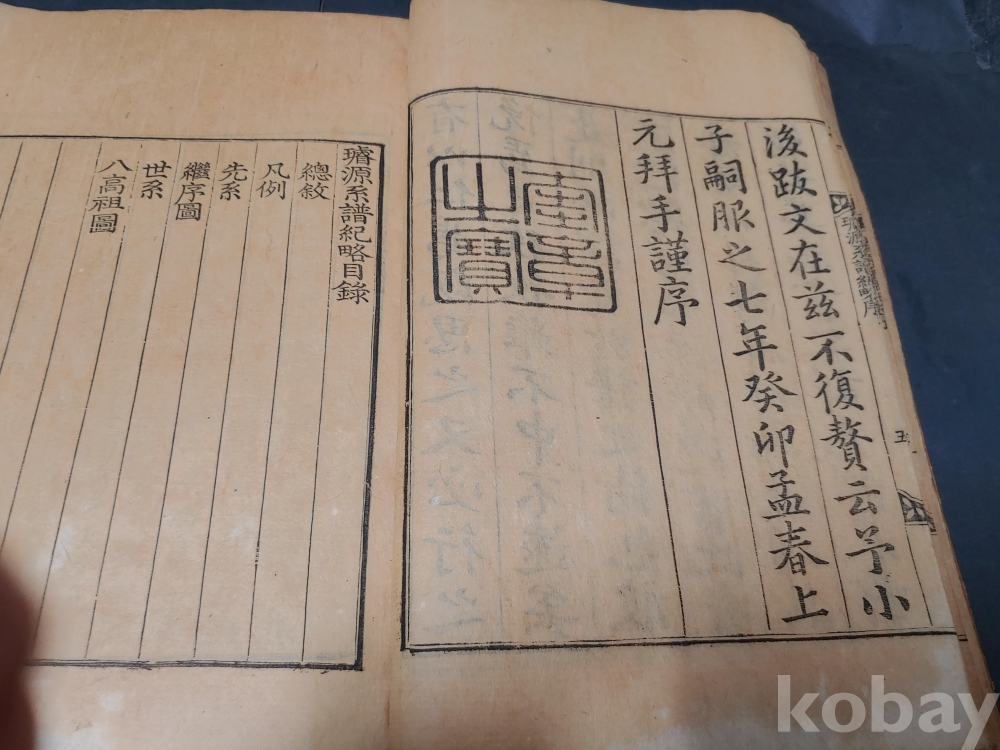 後跋文在茲不復贅云予小
子嗣服之七年癸卯孟春上
元拜手謹序
奎章
之寶
璿源系譜紀略目錄
總敘
凡例
先系
繼序圖
世系
八高祖圖
kobay